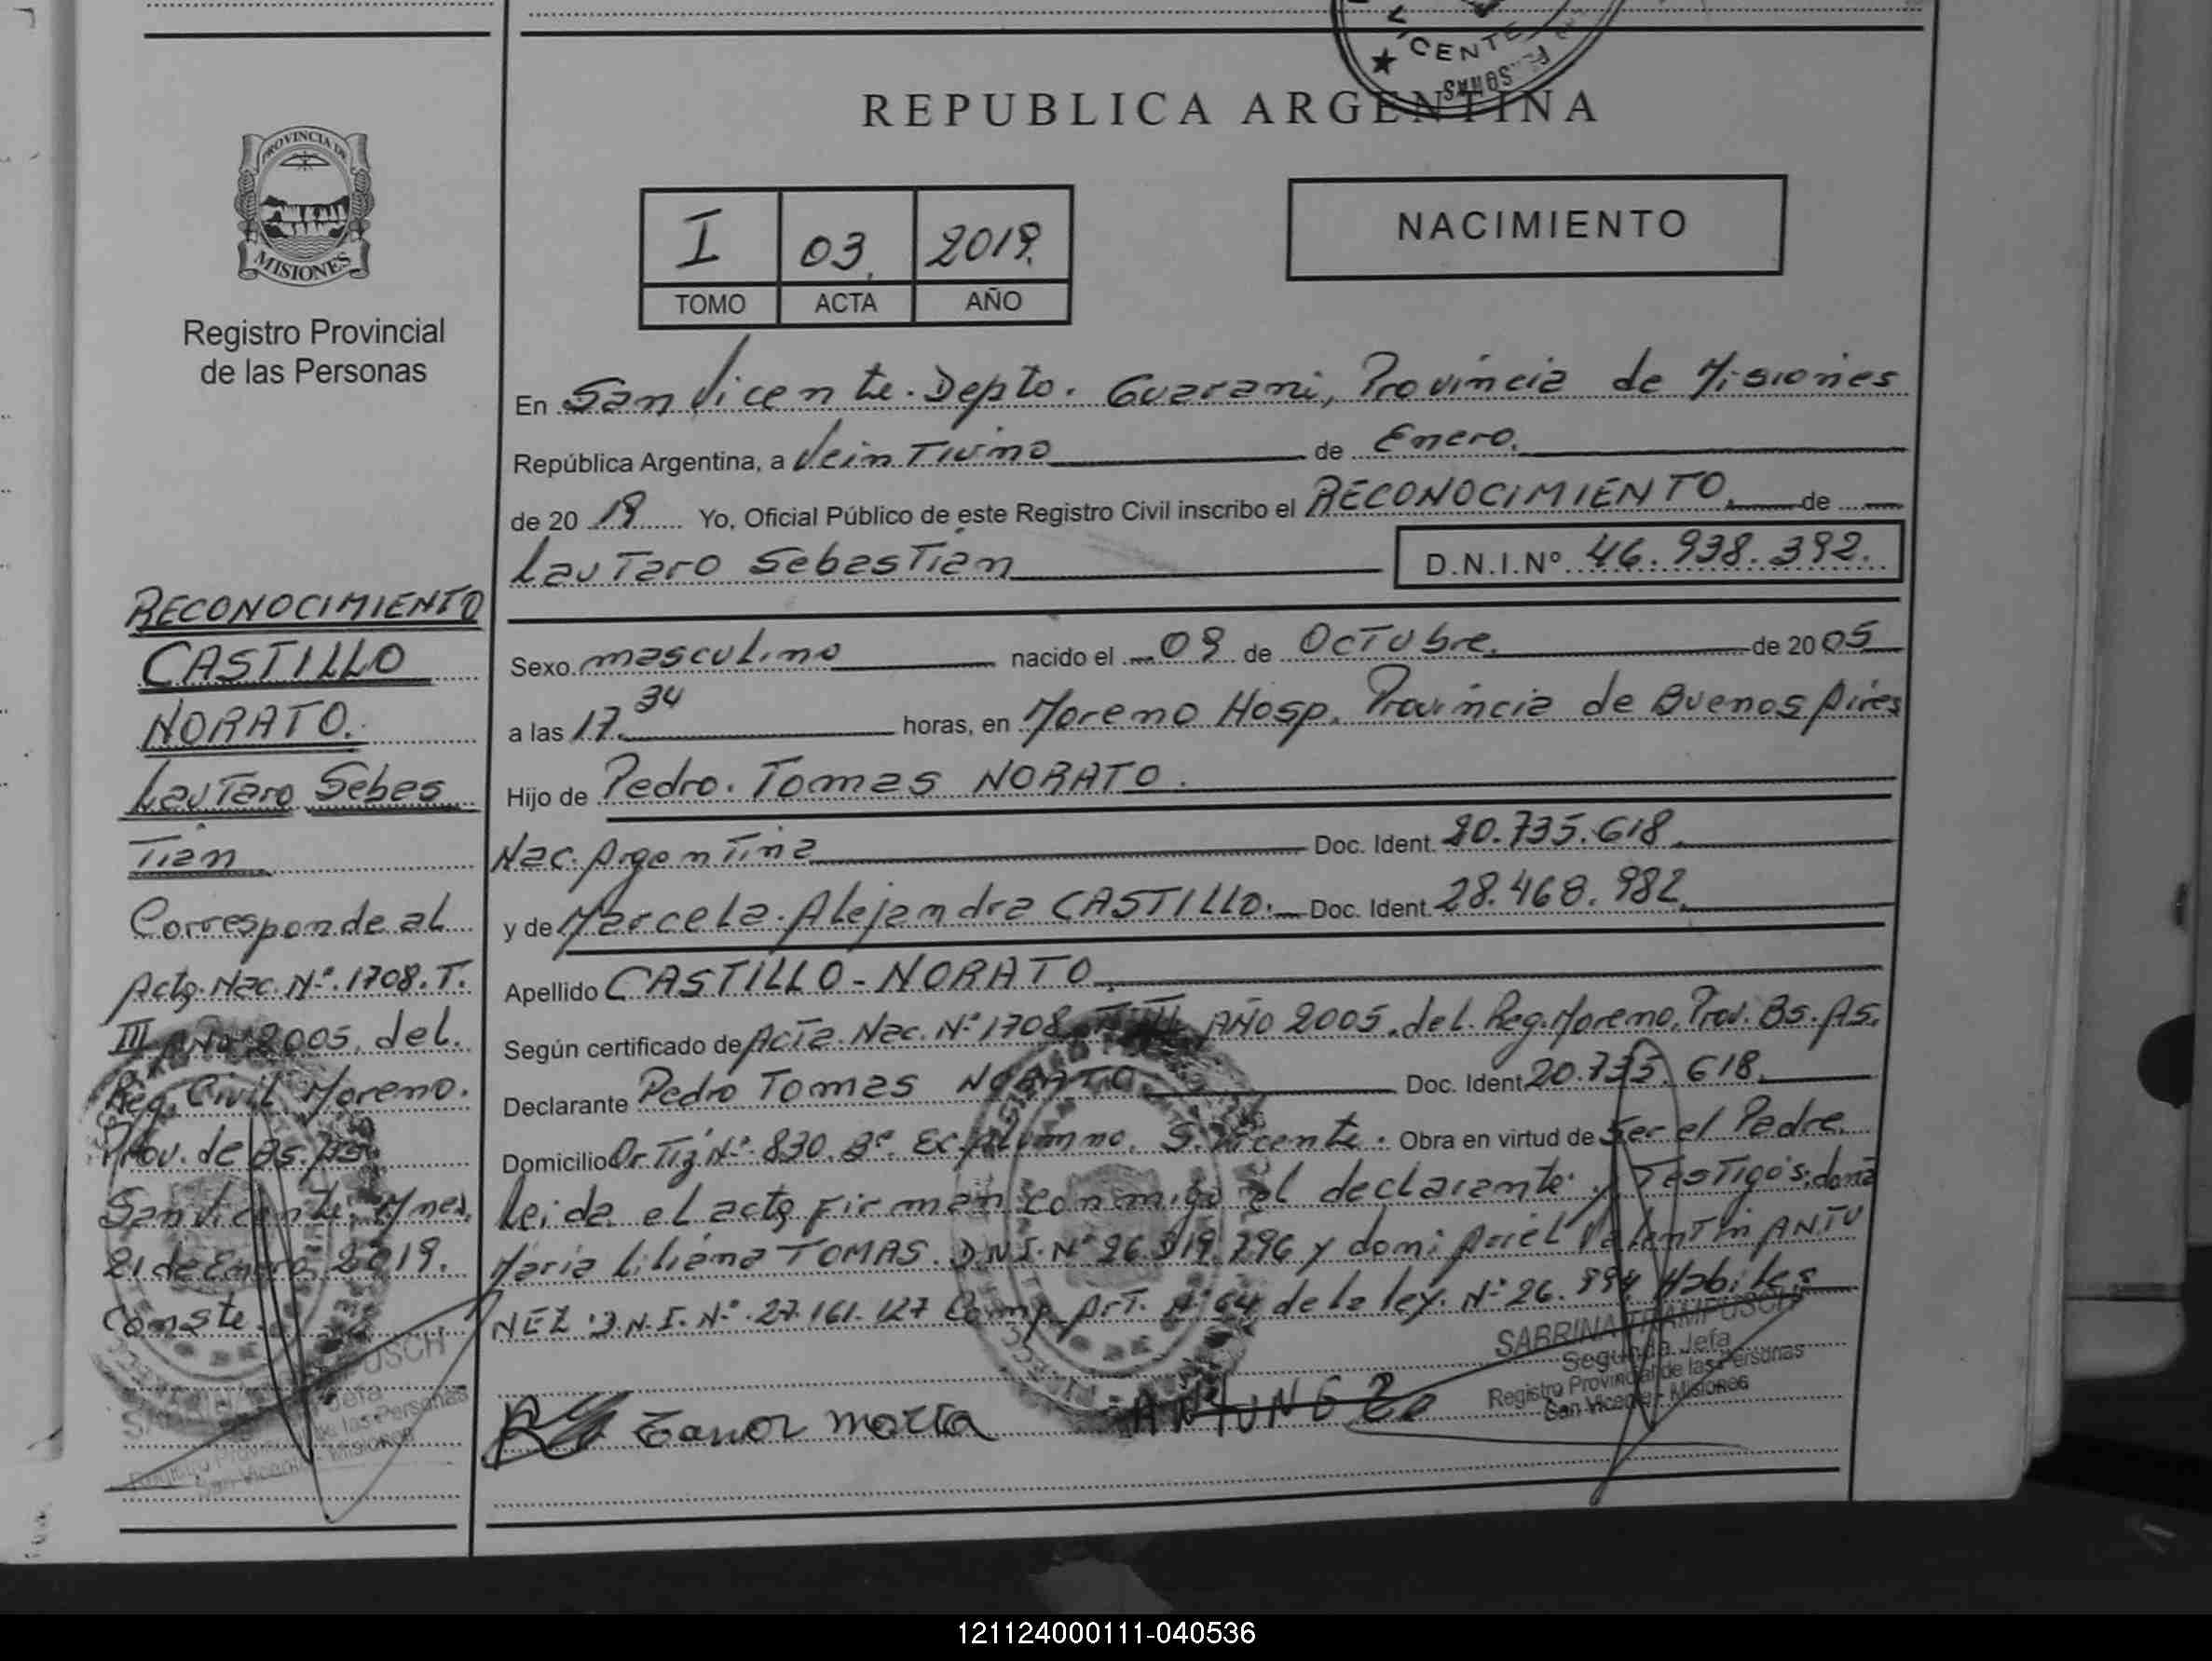 CENTE
REPUBLICA ARGENTINA
PROVINCIA DE
MISIONES
Registro Provincial
de las Personas
I 03 2019.
TOMO ACTA AÑO
NACIMIENTO
En San Vicente. Depto. Guarani, Provincia de Misiones
República Argentina, a VeinTiuno de Enero.
de 20 19 Yo, Oficial Público de este Registro Civil inscribo el RECONOCIMIENTO. de
LauTaro SebasTián
D.N.I.Nº 46.938.392.
Sexo masculino nacido el 09 de OcTubre. de 2005
a las 17.34 horas, en Moreno Hosp. Provincia de Buenos Aires
Hijo de Pedro. Tomas NORATO.
Nac. ArgenTina Doc. Ident. 20.735.618.
y de Marcela. Alejandra CASTILLO. Doc. Ident. 28.468.982.
Apellido CASTILLO - NORATO.
Según certificado de AcTa. Nac. Nº 1708 AÑO 2005. del. Reg. Moreno. Prov. Bs. As.
Declarante Pedro Tomas NORATO Doc. Ident 20.735.618.
Domicilio Or Tiz Nº. 830. Bº. Ex. Alumno. S. Vicente. Obra en virtud de Ser el Padre.
Leida el acta Firman conmigo el declarante. y TesTigos: doña
Maria Liliana TOMAS. D.N.I. Nº 26.919.796 y don: Ariel ValenTin ANTU
NEZ. D.N.I. Nº. 27.161.127 Comp. ArT. Nº 64 de la ley. Nº 26.994 Habiles
RECONOCIMIENTO
CASTILLO
NORATO.
LauTaro Sebas
Tián
Corresponde al
Acta. Nac. Nº. 1708. T.
III AÑO 2005. del.
Reg. Civil Moreno.
Prov. de Bs. As.
San Vicente. Mnes.
21 de Enero 2019.
Conste.
maria
ANTUNEZ
SABRINA TRAMPUSCH
Segunda Jefa
Registro Provincial de las Personas
San Vicente - Misiones
121124000111-040536